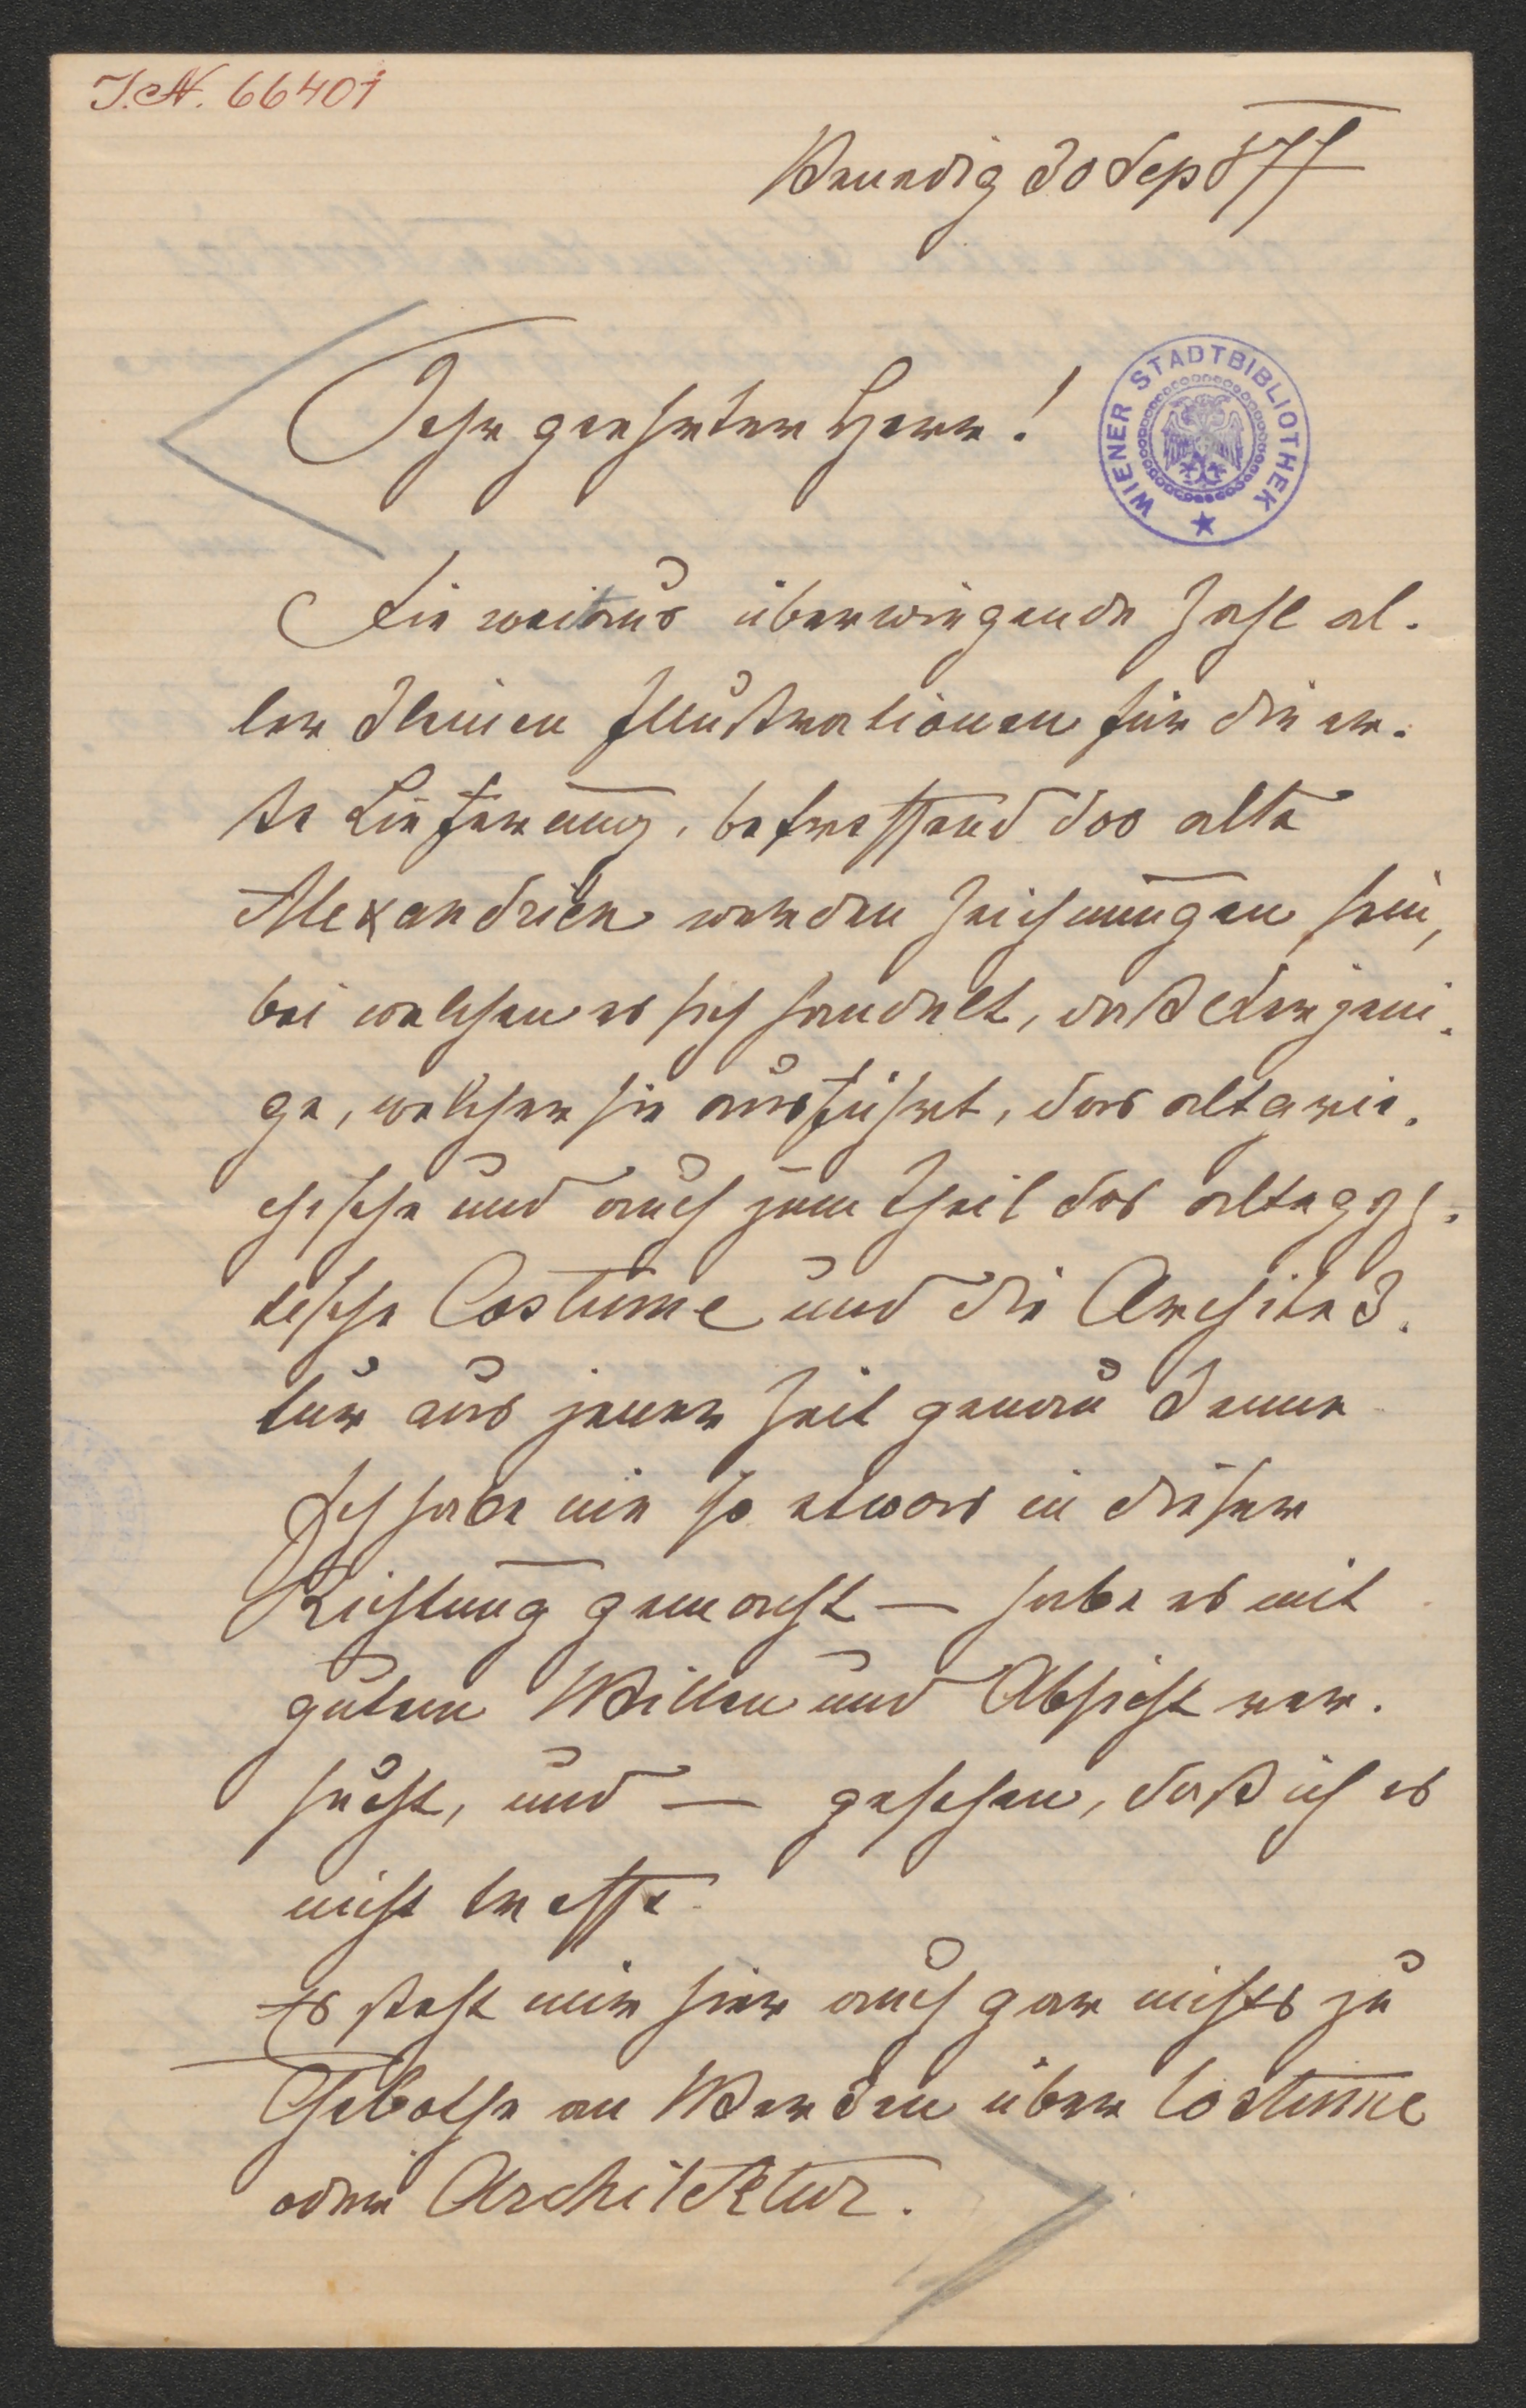 I.N. 66401
Venedig 30 Sep 877
Sehr geehrter Herr!
WIENER STADTBIBLIOTHEK
Die weitaus überwiegende Zahl al-
ler kleinen Illustrationen für die er-
ste Lieferung, betreffend das alte
Alexandrien werden Zeichnungen sein,
bei welchen es sich handelt, daß derjeni-
ge, welcher sie ausführt, das altgrie-
chische und auch zum Theil das altegyp-
tische Costüme und die Architek-
tur aus jener Zeit genau kenne
Ich habe nie so etwas in dieser
Richtung gemacht — habe es mit
gutem Willen und Absicht ver-
sucht, und — gesehen, daß ich es
nicht treffe
Es steht mir hier auch gar nichts zu
Gebothe an Werken über Costüme
oder Architektur.